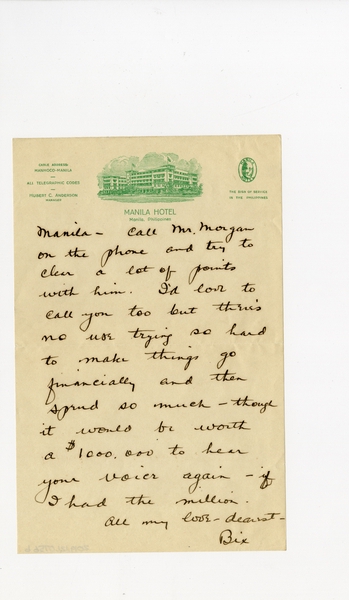 CABLE ADDRESS
MANHOCO-MANILA
ALL TELEGRAPHIC CODES
HUBERT C. ANDERSON
MANAGER
THE SIGN OF SERVICE
IN THE PHILIPPINES
MANILA HOTEL
Manila, Philippines
Manila – Call Mr. Morgan
on the phone and try to
clear a lot of points
with him. I'd love to
call you too but there's
no use trying so hard
to make things go
financially and then
spend so much – though
it would be worth
a $1000,000 to hear
your voice again – if
I had the million.
All my love – dearest –
Bix